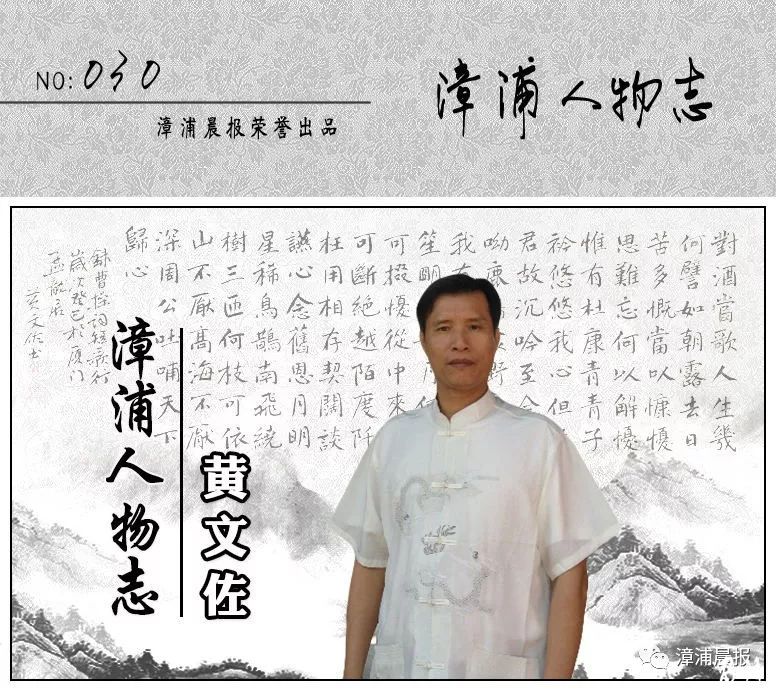 NO: 030
漳浦晨报荣誉出品
漳浦人物志
對酒當歌人生幾
何譬如朝露去日
苦多慨當以慷憂
思難忘何以解憂
惟有杜康青青子
衿悠悠我心但
君故沉吟至
呦鹿 野
我有
笙明
可掇憂從中來
可斷絕越陌度阡
枉用相存契闊談
讌心念舊恩月明
星稀烏鵲南飛繞
樹三匝何枝可依
山不厭高海不厭
深周公吐哺天下
歸心
錄曹操詞短歌行
歲次癸巳於厦门
黄文佐书
漳浦人物志
黄文佐
漳浦晨报